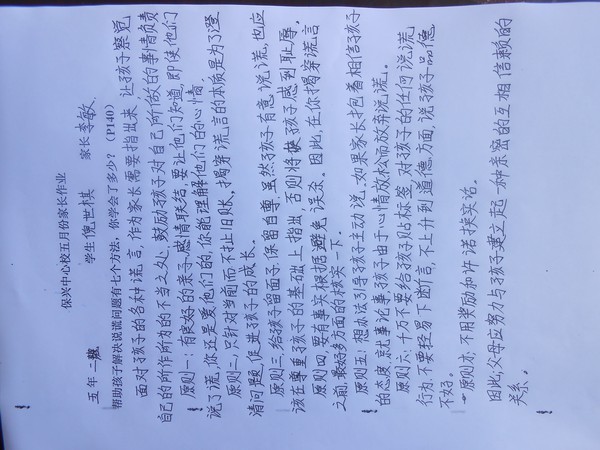 保兴中心校五月份家长作业
五年二班 学生倪世棋 家长李敏
帮助孩子解决说谎问题有七个方法，你学会了多少？（P140）
面对孩子的各种谎言，作为家长需要指出来，让孩子察觉
自己的所作所为的不当之处，鼓励孩子对自己所做的事情负责
原则一：有良好的亲子感情联结，要让他们知道，即使他们
说了谎，你还是爱他们的，你能理解他们的心情，
原则二，只针对当前而不扯旧账，揭穿谎言的本质是为了澄
清问题，促进孩子的成长。
原则三，给孩子留面子，保留自尊，虽然孩子有意说谎，也应
该在尊重孩子的基础上指出，否则将使孩子感到耻辱，
原则四，要有事实根据避免误会。因此，在你揭穿谎言
之前，最好多方面的核实一下。
原则五：想办法引导孩子主动说，如果家长抱着相信孩子
的态度，就事论事，孩子由于心情放松而放弃说谎。
原则六：千万不要给孩子贴标签，对孩子的任何说谎
行为，不要轻易下断言，不上升到道德方面，说孩子品德
不好。
原则七，不用奖励和许诺换实话。
因此，父母应努力与孩子建立起一种亲密的互相信赖的
关系。